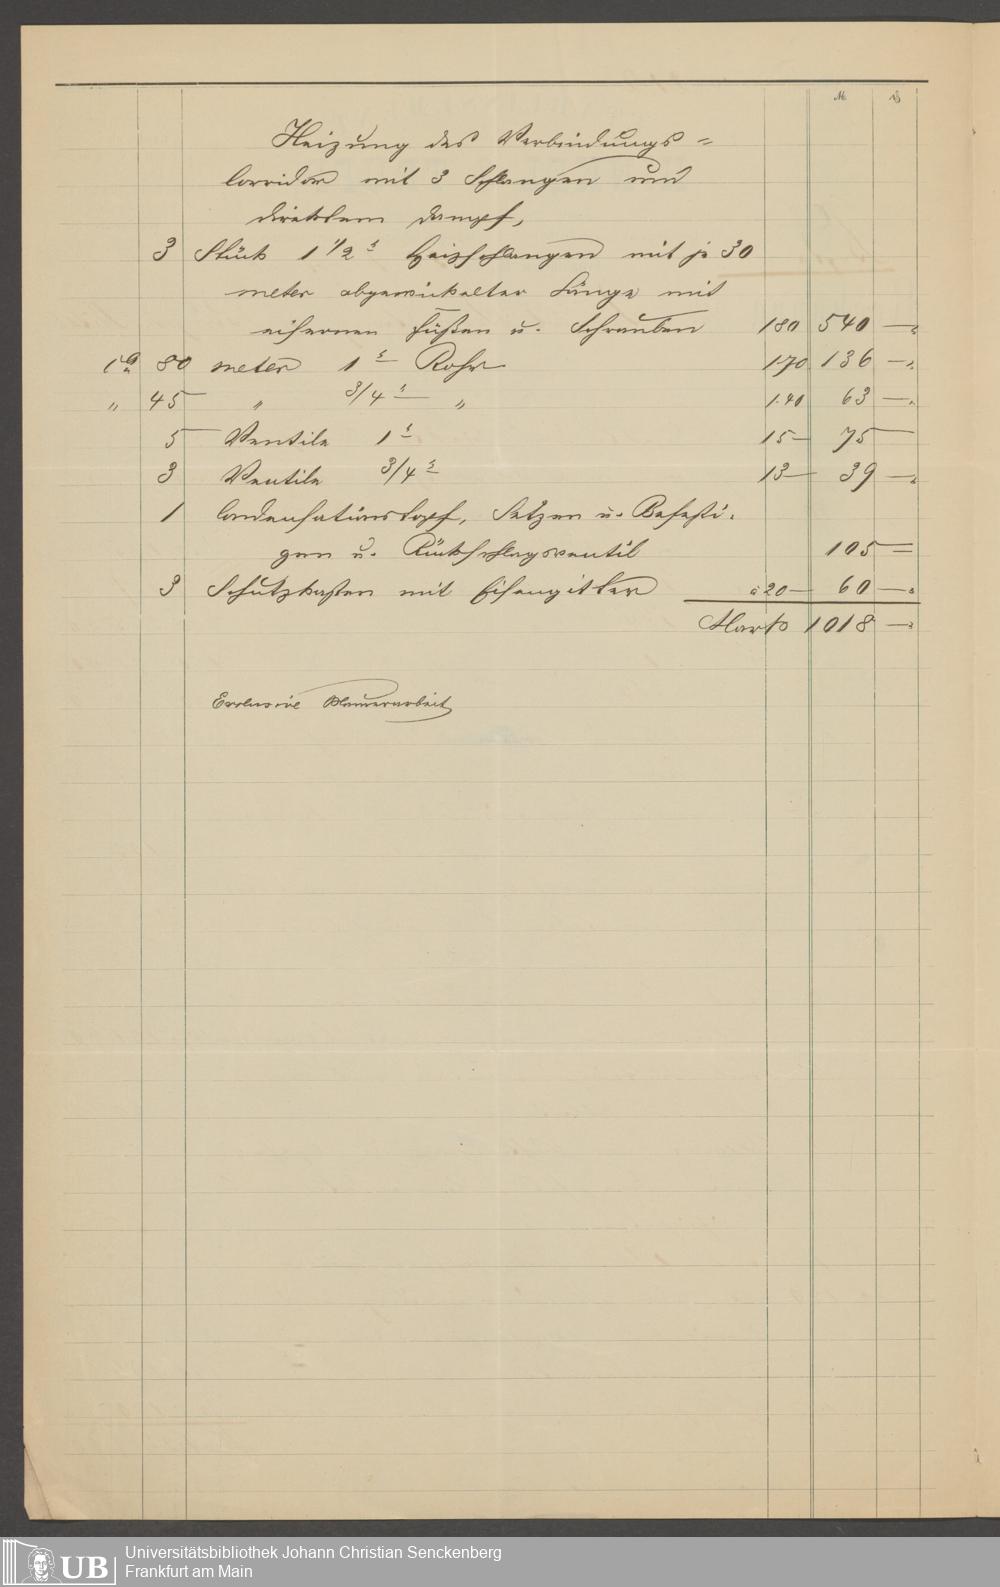 M ₰
Heizung des Verbindungs=
corridor mit 3 Schlangen und
direktem Dampf,
3 Stück 1 1/2 " Heizschlangen mit je 30
meter abgewickelter Länge mit
eisernen Füßen u. Schrauben 180 540 —
ca 80 meter 1 " Rohr 1.70 136 —
" 45 " 3/4 " " 1.40 63 —
5 Ventile 1 " 15 — 75 —
3 Ventile 3/4 " 13 — 39 —
1 Condensationstopf, Setzen u. Befesti-
gen u. Rückschlagventil 105 —
3 Schutzkasten mit Eisengitter à 20 — 60 —
Mark 1018 —
Exclusive Maurerarbeit
UB Universitätsbibliothek Johann Christian Senckenberg
Frankfurt am Main